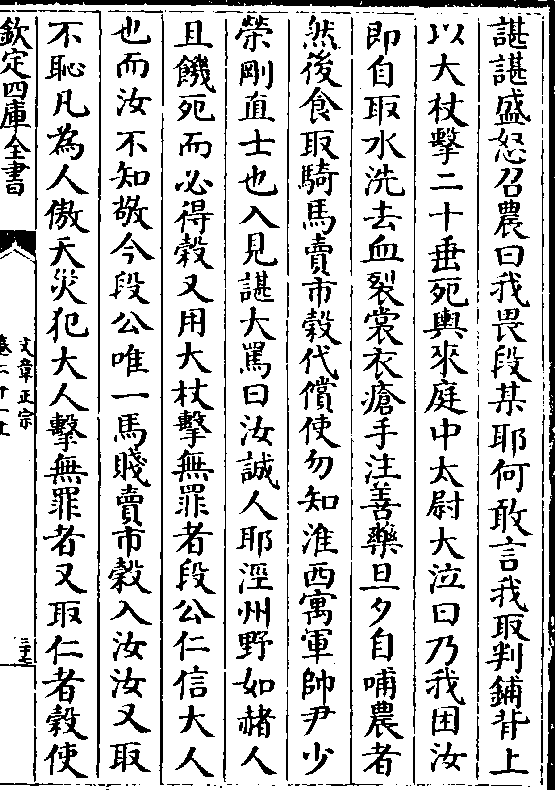 諶諶盛怒召農曰我畏段某耶何敢言我取判鋪背上
以大杖擊二十垂死輿來庭中太尉大泣曰乃我困汝
即自取水洗去血裂裳衣瘡手注善藥旦夕自哺農者
然後食取騎馬賣市穀代償使勿知淮西寓軍帥尹少
榮剛直士也入見諶大罵曰汝誠人耶涇州野如赭人
且饑死而必得穀又用大杖擊無罪者段公仁信大人
也而汝不知敬今段公唯一馬賤賣市穀入汝汝又取
不恥凡為人傲天災犯大人擊無罪者又取仁者穀使
欽定四庫全書
文章正宗
卷二十一上
三十七